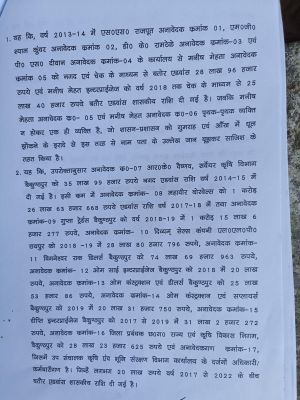 1. यह कि, वर्ष 2013-14 में एस०एस० राजपूत अनावेदक कमांक 01, एम०जी०
श्याम कुंवर अनावेदक कमांक 02, डी० के० रामटेके अनावेदक कमांक-03 एवं
पी० एस० दीवान अनावेदक कमांक-04 के कार्यालय से मनीष मेहता अनावेदक
कमांक 05 को नगद एवं चेक के माध्यम से बतौर एडवांस 28 लाख 96 हजार
रुपये एवं मनीष मेहता इन्टरप्राईजेज को वर्ष 2018 तक चेक के माध्यम से 25
लाख 40 हजार रुपये बतौर एडवांस शासकीय राशि दी गई है। जबकि मनीष
मेहता अनावेदक क०- 05 एवं मनीष मेहता अनावेदक क०-06 पृथक-पृथक व्यक्ति
न होकर एक ही व्यक्ति है, जो शासन-प्रशासन को गुमराह एवं आँख में धूल
झोंकने के इरादे से इस तरह से नाम पता के उल्लेख जान बूझकर साजिश के
तहत किया है।
2. यह कि, उपरोक्तानुसार अनावेदक क०-07 आर०के० वैष्णव, सर्वेयर कृषि विभाग
बैकुण्ठपुर को 35 लाख 99 हजार रुपये नगद एडवांस राशि वर्ष 2014-15 में
दी गई है। इसी कम में अनावेदक कमांक- 08 महावीर बोरवेल्स को 1 करोड़
26 लाख 63 हजार 568 रुपये एडवांस राशि वर्ष 2017-18 में तथा अनावेदक
कमांक-09 गुप्ता ट्रेडर्स बैकुण्ठपुर को वर्ष 2018-19 में 1 करोड़ 15 लाख 6
हजार 277 रुपये, अनावेदक कमांक- 10 दिव्यम् सेल्स कंपनी एल०एल०पी०
रायपुर को 2018-19 में 28 लाख 80 हजार 796 रुपये, अनावेदक कमांक-
11 विघ्नेश्वर एक डिलर्स बैकुण्ठपुर को 74 लाख 69 हजार 963 रुपये,
अनावेदक कमांक- 12 ओम साई इन्टरप्राईजेज बैकुण्ठपुर को 2018 में 20 लाख
रुपये, अनावेदक कमांक-13 ओम कंस्ट्रक्शन एवं डीलर्स बैकुण्ठपुर को 25 लाख
53 हजार 86 रुपये, अनावेदक कमांक-14 ओम कंस्ट्रक्शन एवं सप्लायर्स
बैकुण्ठपुर को 2019 में 20 लाख 31 हजार 750 रुपये, अनावेदक कमांक-15
दीप्ति इन्टरप्राईजेज बैकुण्ठपुर को 2017 से 2019 में 31 लाख 2 हजार 272
रुपये, अनावेदक कमांक-16 जिला प्रबंधक छ०ग० राज्य एवं कृषि विकास निगम,
बैकुण्ठपुर को 28 लाख 23 हजार 625 रुपये एवं अनावेदकगण कमांक-17,
जिसमें उप संचालक कृषि एंव भूमि संरक्षण विभाग कार्यालय के दर्जनों अधिकारी/
कर्मचारीगण है। जिन्हें लगभग 20 लाख रुपये वर्ष 2017 से 2022 के बीच
बतौर एडवांस शासकीय राशि दी गई है।